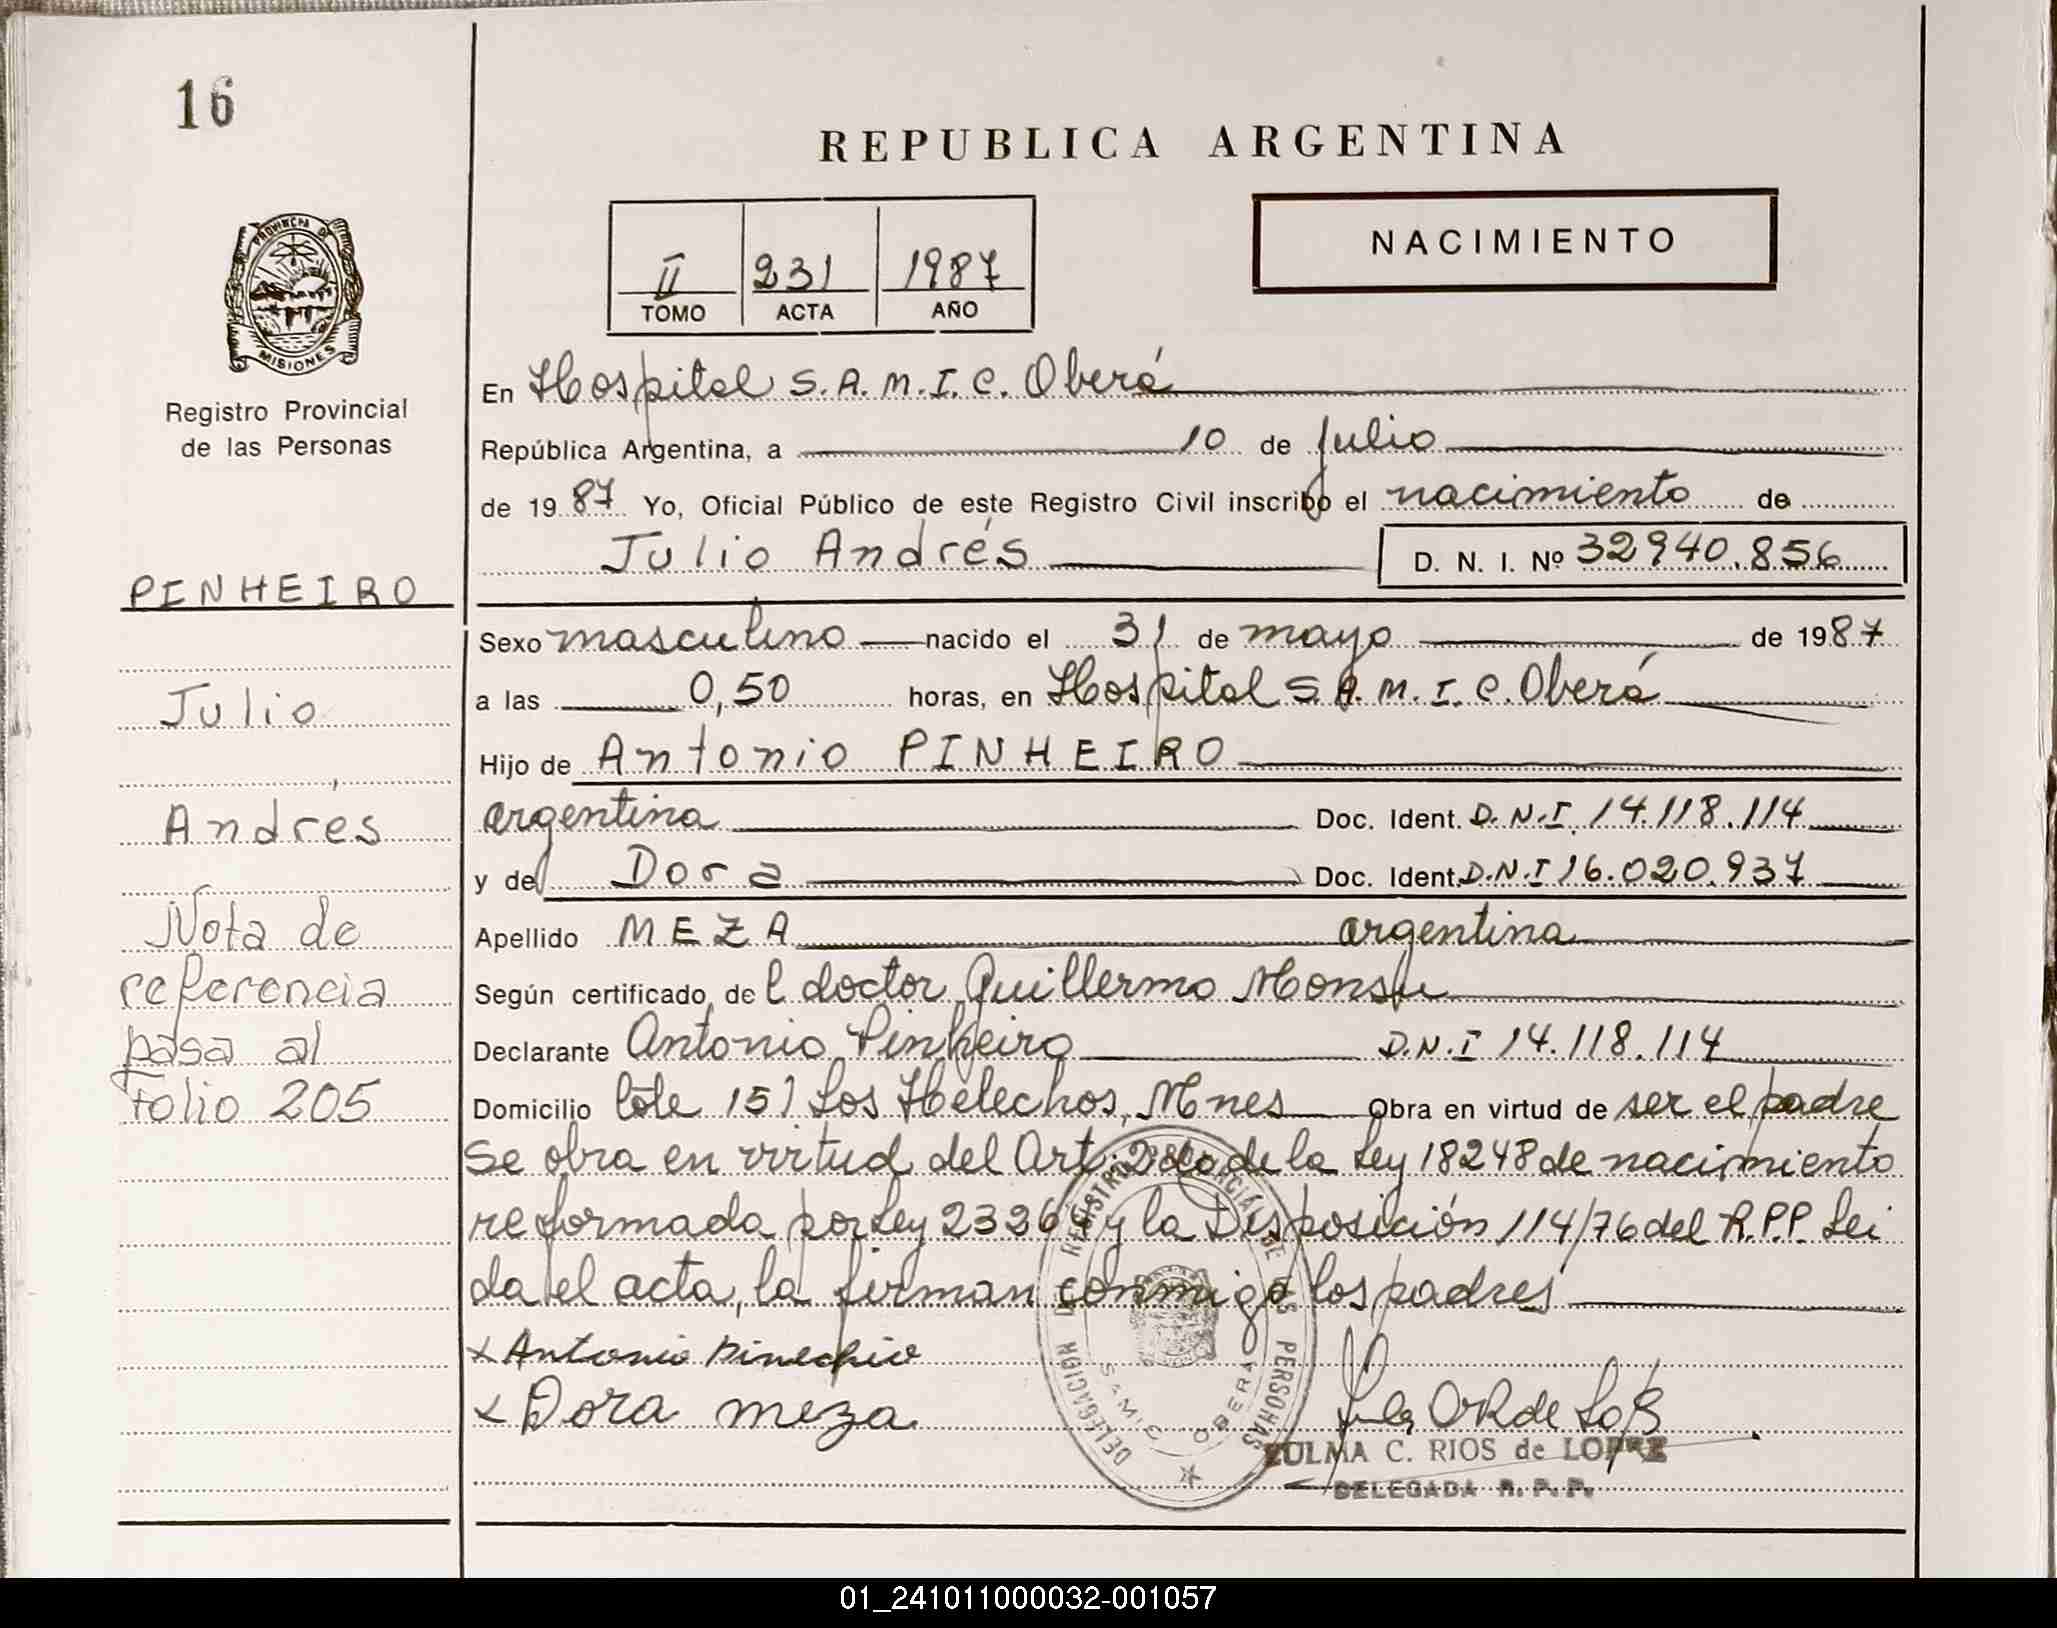 16
REPUBLICA ARGENTINA
NACIMIENTO
II 231 1987
TOMO ACTA AÑO
PROVINCIA DE
MISIONES
Registro Provincial
de las Personas
En Hospital S.A.M.I.C. Oberá
República Argentina, a 10 de Julio
de 1987 Yo, Oficial Público de este Registro Civil inscribo el nacimiento de
Julio Andrés D. N. I. Nº 32940.856
PINHEIRO
Julio
Andrés
Nota de
referencia
pasa al
Folio 205
Sexo masculino nacido el 31 de mayo de 1987
a las 0,50 horas, en Hospital S.A.M.I.C. Oberá
Hijo de Antonio PINHEIRO
argentina Doc. Ident. D.N.I. 14.118.114
y de Dora Doc. Ident. D.N.I 16.020.937
Apellido MEZA argentina
Según certificado del doctor Guillermo
Declarante Antonio Pinheiro D.N.I 14.118.114
Domicilio lote 151 Los Helechos, Mnes Obra en virtud de ser el padre
Se obra en virtud del Art. 2do de la Ley 18248 de nacimiento
reformada por Ley 2326 y la Disposición 114/76 del R.P.P. Lei
da el acta, la firman conmigo los padres
x Antonio
x Dora meza
DELEGACION REGISTRO PROVINCIAL DE LAS PERSONAS
SAMIC - OBERA
ZULMA C. RIOS de LOPEZ
DELEGADA R.P.P.
01_241011000032-001057